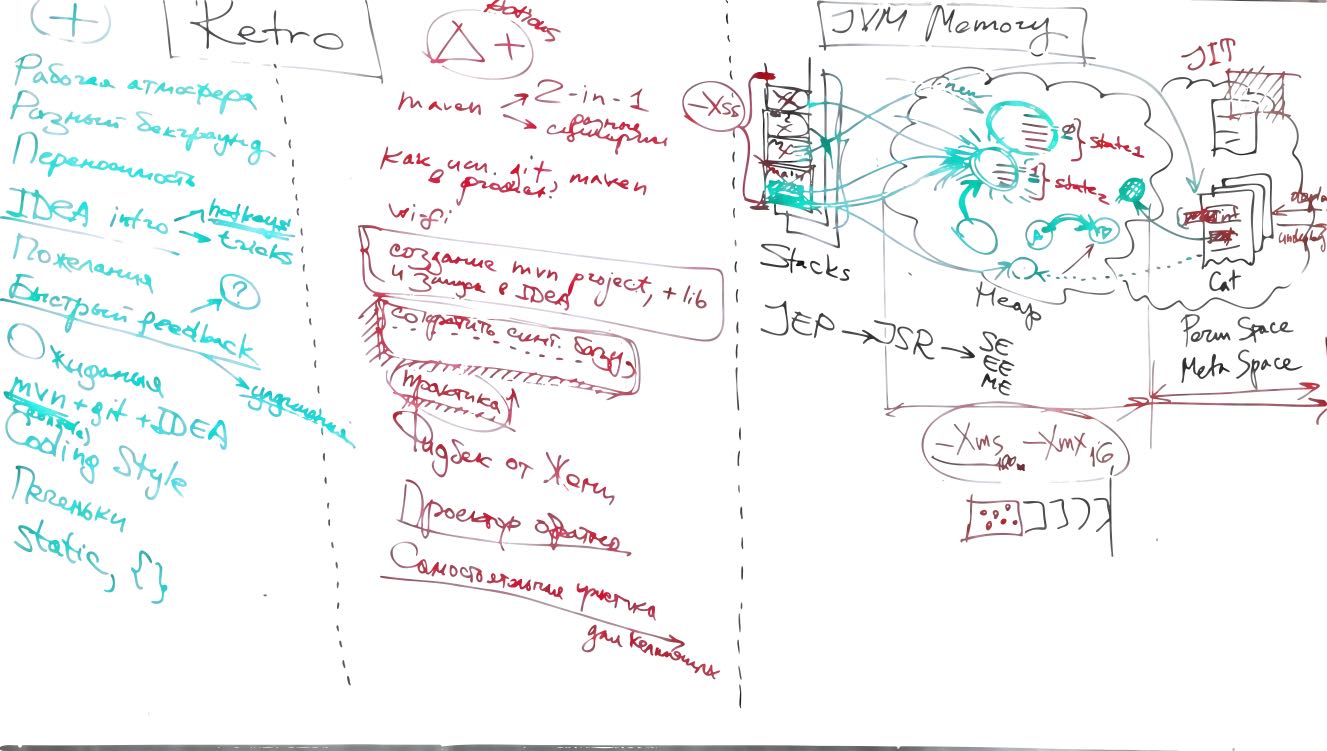 +
Retro
Рабочая атмосфера
Разный бекграунд
Переносимость
IDEA intro
hotkeys
tricks
Пожелания
Быстрый feedback
?
Ожидания
mvn + git + IDEA
(console)
Coding Style
Печеньки
static, {}
Actions
△ +
maven
2-in-1
разные
сценарии
Как исп. git, maven
в project?
wifi
создание mvn project, + lib
и запуск в IDEA
сократить синт. базу,
практика
Фидбек от Жени
Проектор обратно
Самостоятельная практика
для желающих
JVM Memory
-Xss
main
Stacks
new
0 } state1
1 } state2
A
B
Heap
JIT
int
Cat
Perm Space
Meta Space
JEP → JSR →
SE
EE
ME
-Xms -Xmx 1G